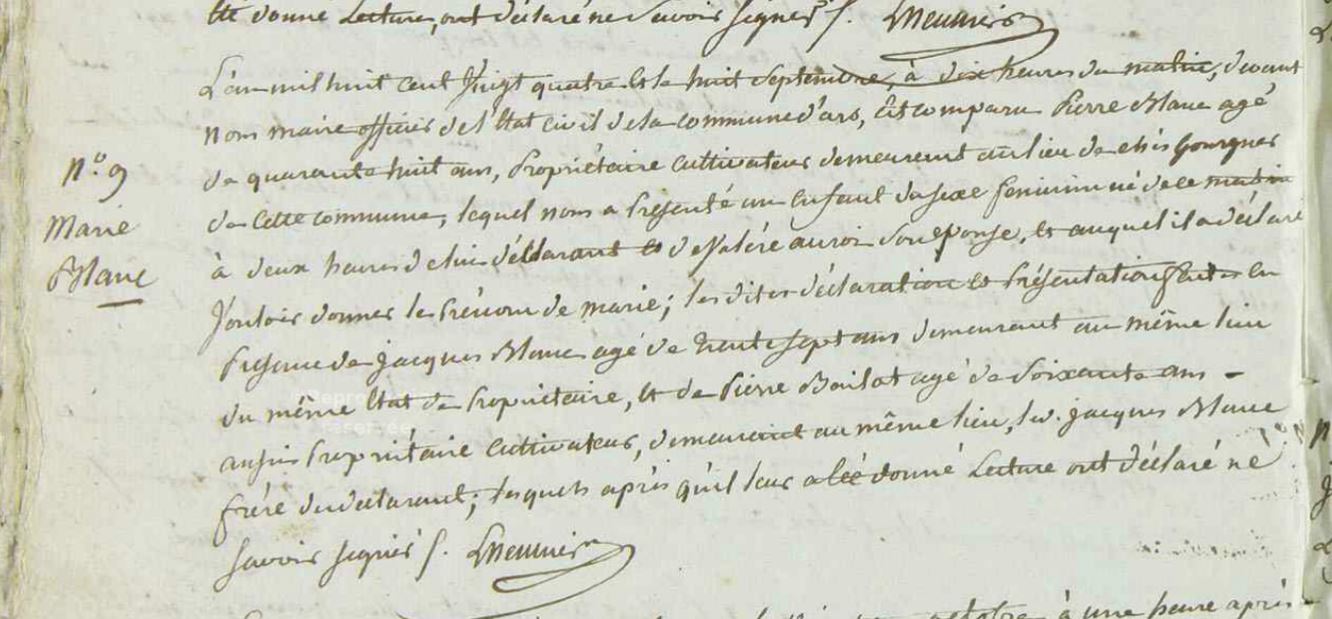 été donné Lecture, ont déclaré ne Savoir Signer /. Lmeunier
L'an mil huit cent Vingt quatre et le huit Septembre, à dix heures du matin, devant
nous maire officier de l'état civil de la commune d'ars, Est comparu Pierre Blanc agé
de quarante huit ans, Propriétaire cultivateur demeurant au lieu de chés
de cette commune, lequel nous a présenté un Enfant du sexe feminin né de ce matin
à deux heures de lui déclarant et de Valére son Eponse, et auquel il a déclaré
Vouloir donner le Prénom de marie; les dites déclaration et Présentation faites en
N.o 9
Marie
Blanc
Présence de jacques Blanc agé de trente sept ans demeurant au même lieu
du même Etat de Propriétaire, et de Pierre agé de Soixante ans -
aussi Propriétaire Cultivateur, demeurant au même lieu, le d. jacques Blanc
frére du déclarant; lesquels aprés qu'il leur a été donné Lecture ont déclaré ne
Savoir signer /. Lmeunier
octobre à une heure aprés